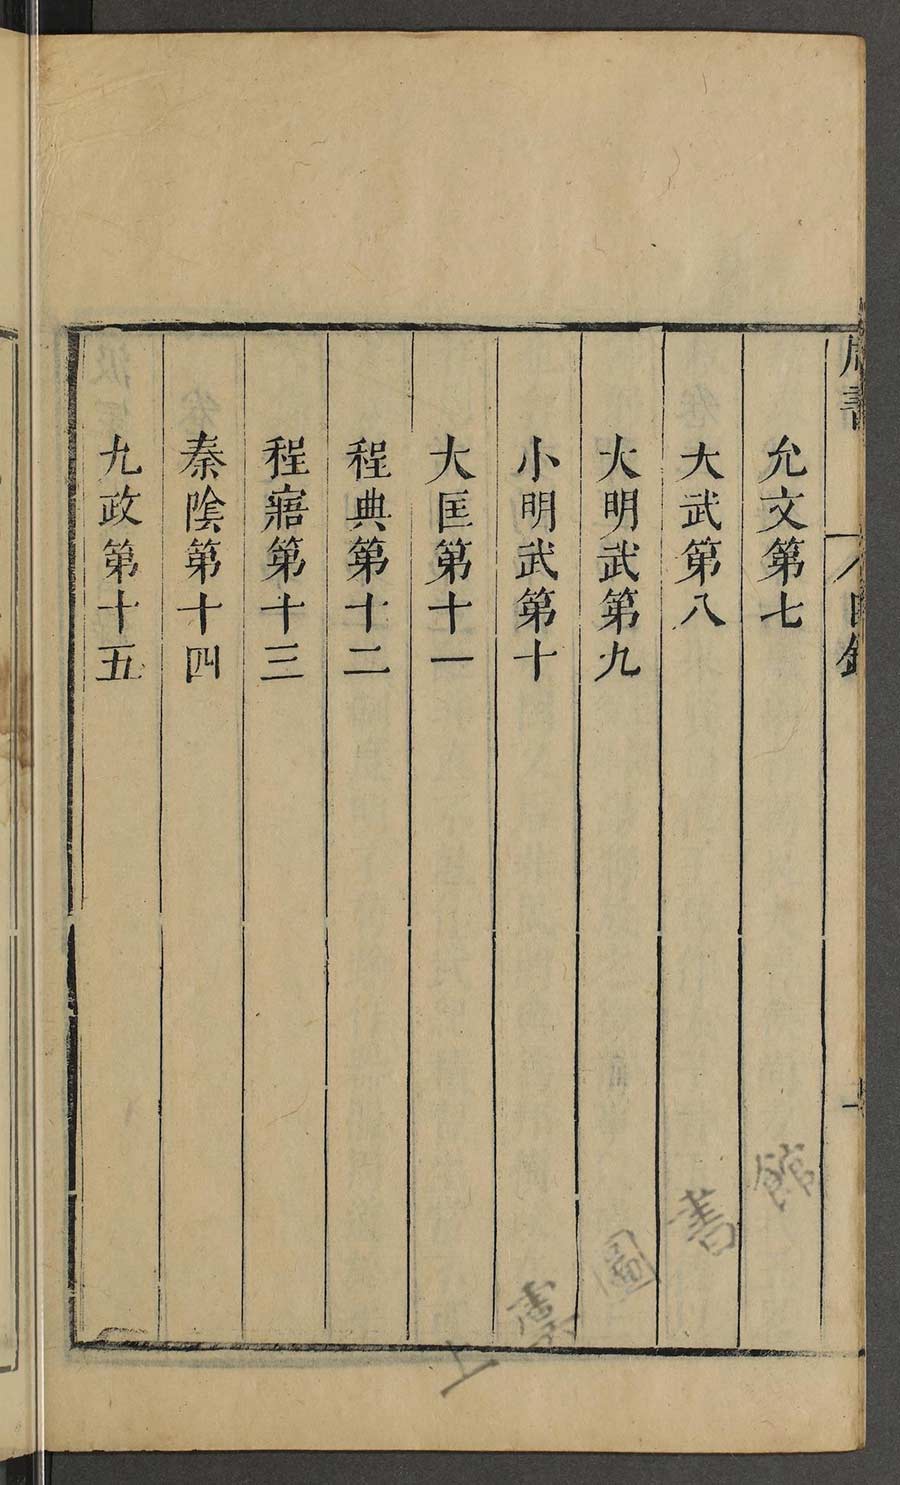 允文第七
大武第八
大明武第九
小明武第十
大匡第十一
程典第十二
程寤第十三
秦陰第十四
九政第十五
上虞圖書館